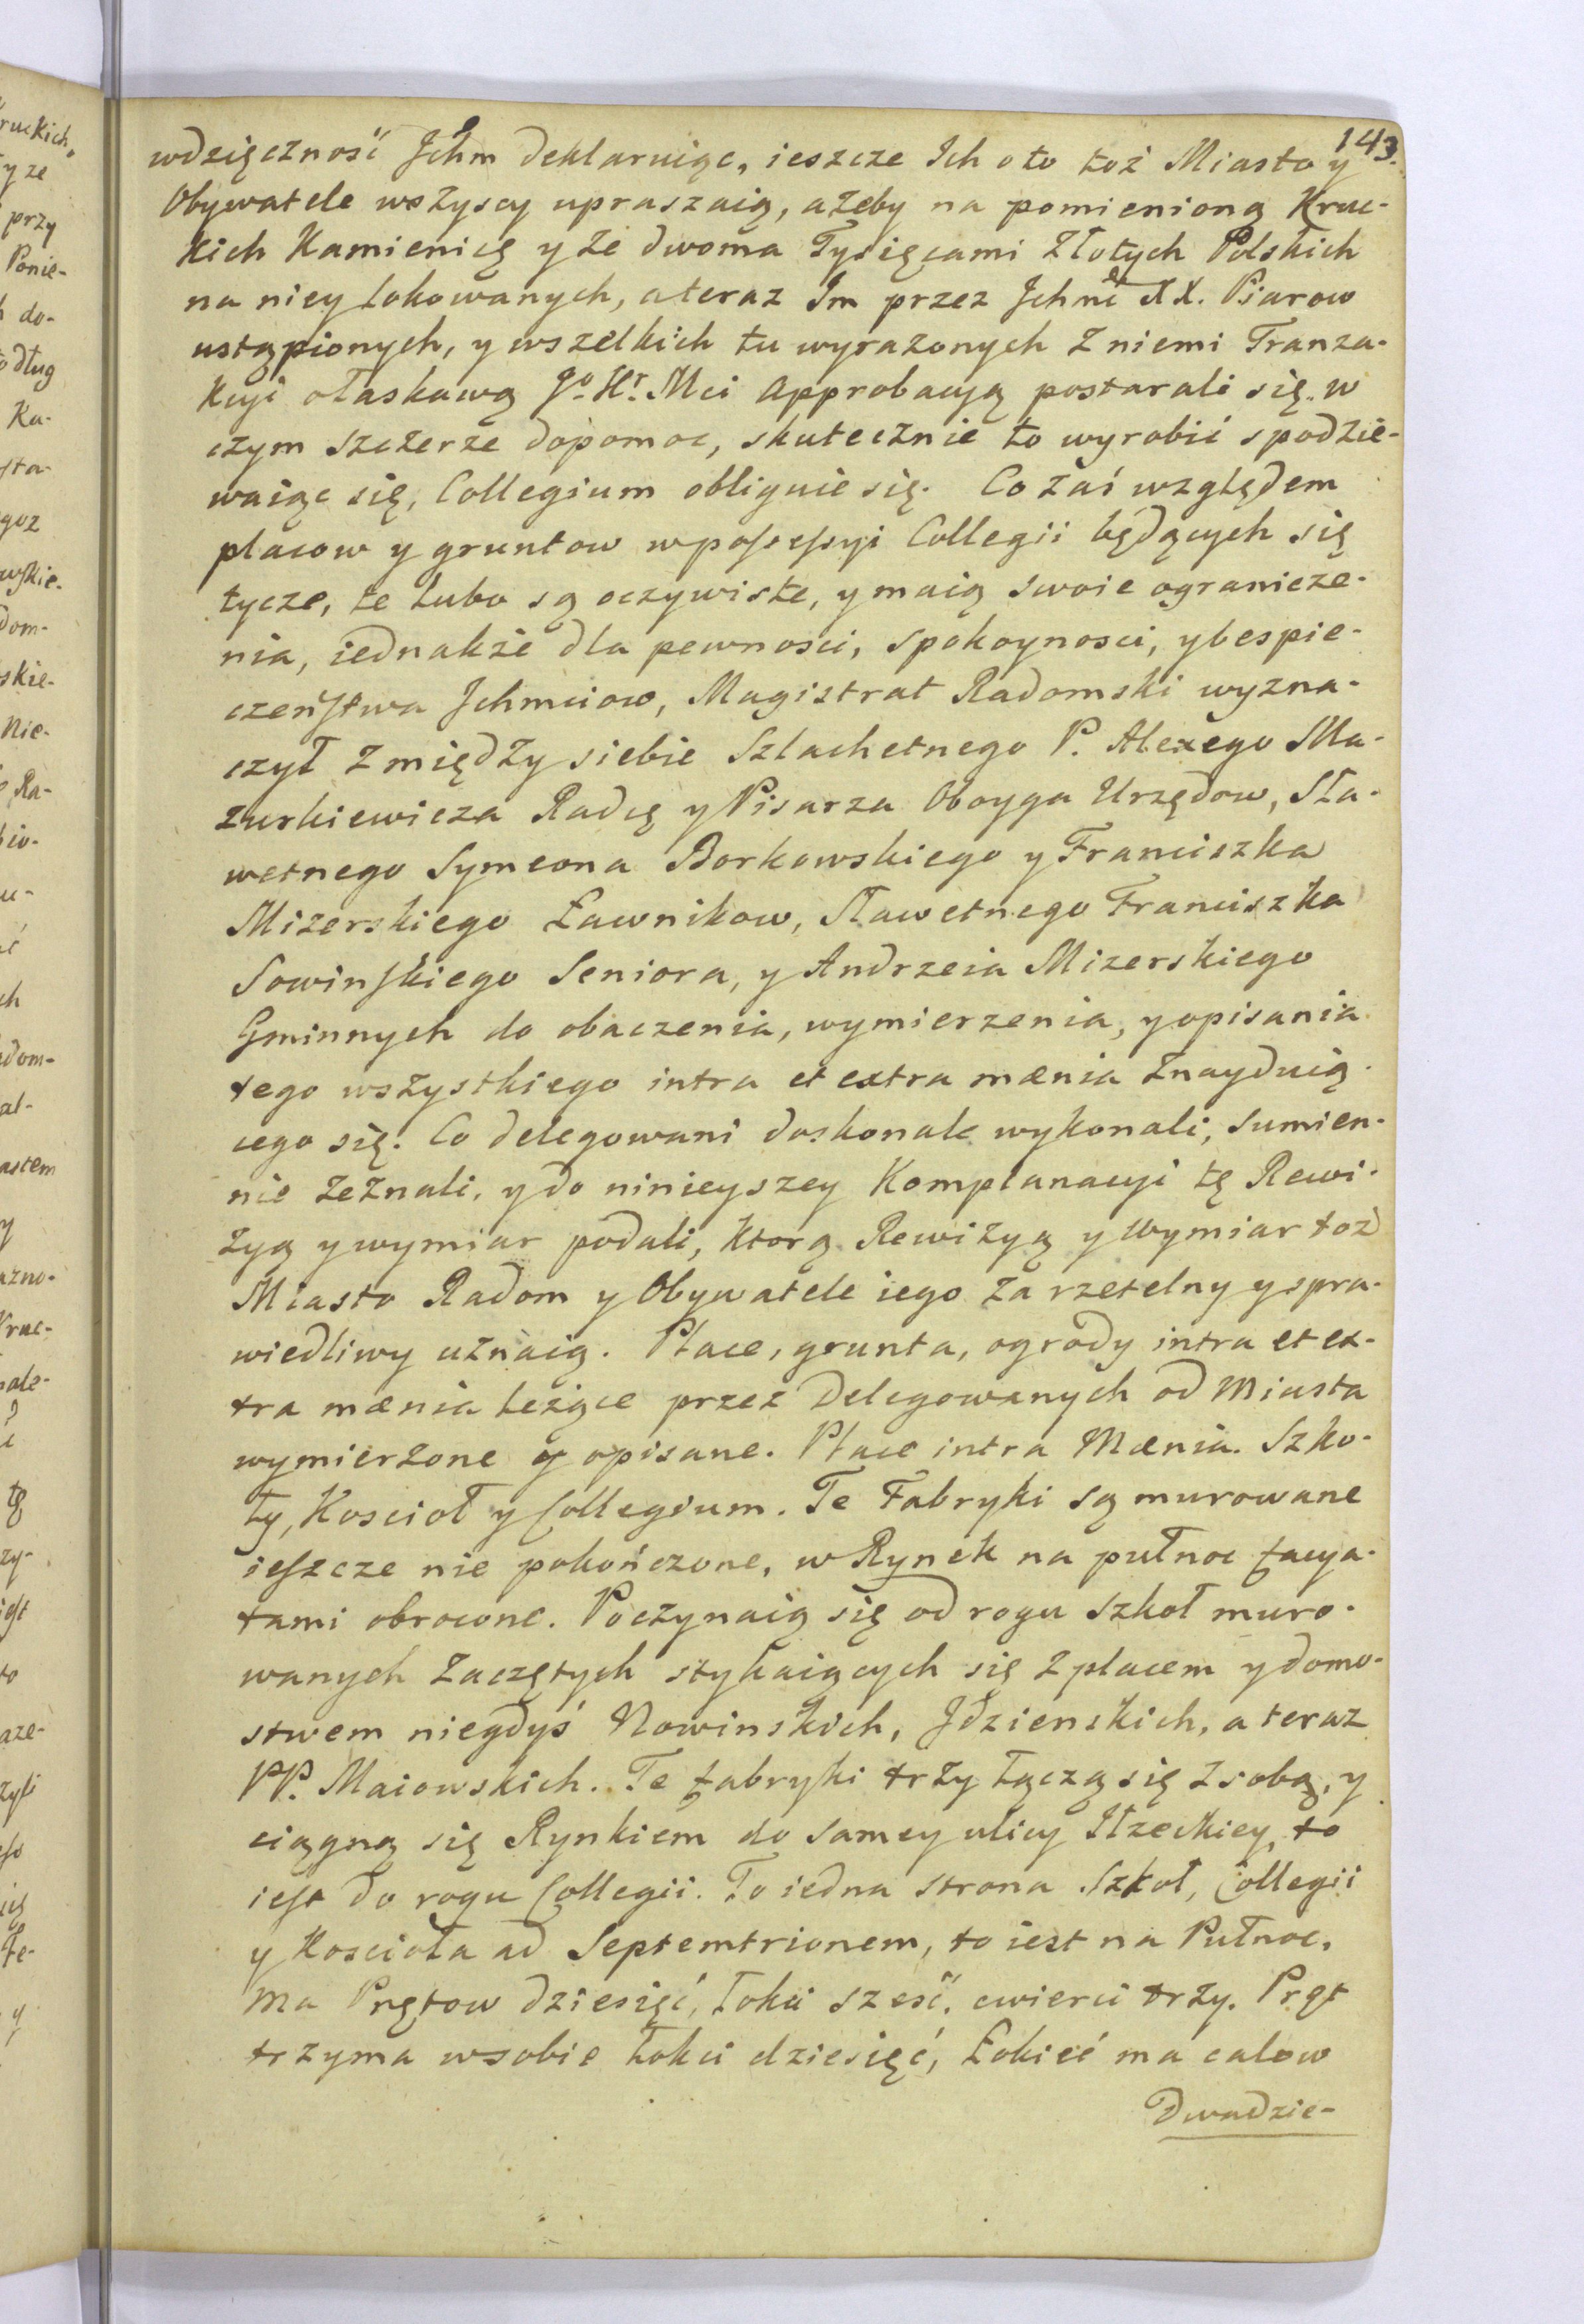 143.
wdzięcznosć Jchm deklaruiąc, ieszcze Ich oto toż Miasto y
Obywatele wszyscy upraszaią, ażeby na pomienioną Kruc-
kich Kamienicę y że dwoma Tysięcami Złotych Polskich
na niey lokowanych, a teraz Im przez Jchmć XX. Piarow
ustąpionych, y wszelkich tu wyrażonych z niemi Tranza-
kcyi ołaskawą Jo. Kr. Mci Approbacyą postarali się. w
czym szczerze dopomoc, skutecznie to wyrobić spodzie-
waiąc się, Collegium obliguie się. Co zaś względem
placow y gruntow w possessyi Collegii będących się
tycze, te lubo są oczywiste, y maią swoie ogranicze-
nia, iednakże dla pewnosci, spokoynosci, y bespie-
czeństwa Jchmciow, Magistrat Radomski wyzna-
czył z między siebie Szlachetnego P. Alexego Ma-
zurkiewicza Radcę y Pisarza Oboyga Urzędow, Sła-
wetnego Symeona Borkowskiego y Franciszka
Mizerskiego Ławnikow, Sławetnego Franciszka
Sowinskiego Seniora, y Andrzeia Mizerskiego
Gminnych do obaczenia, wymierzenia, y opisania
tego wszystkiego intra et extra mænia znayduią-
cego się. Co delegowani doskonale wykonali, sumien-
nie zeznali, y do ninieyszey Komplanacyi tę Rewi-
zyą y wymiar podali, ktorą Rewizyą y Wymiar toż
Miasto Radom y Obywatele iego za rzetelny y spra-
wiedliwy uznaią. Place, grunta, ogrody intra et ex-
tra mænia leżące przez Delegowanych od Miasta
wymierzone y opisane. Place intra Mænia. Szko-
ły, Kościoł y Collegium. Te Fabryki są murowane
ieszcze nie pokończone, w Rynek na pułnoc facya-
tami obrocone. Poczynaią się od rogu Szkoł muro-
wanych zaczętych stykaiących się z placem y domo-
stwem niegdyś Nowinskich, Jdzienskich, a teraz
PP. Maiowskich. Te fabryki trzy łączą się z sobą, y
ciągną się Rynkiem do samey ulicy Iłzeckiey, to
iest do rogu Collegii. To iedna strona Szkoł, Collegii
y Kościoła ad Septemtrionem, to iest na Pułnoc,
ma Prętow dziesięć, łokci szesć, cwierci trzy. Pręt
trzyma w sobie łokci dziesięć, Łokieć ma calow
Dwadzie-